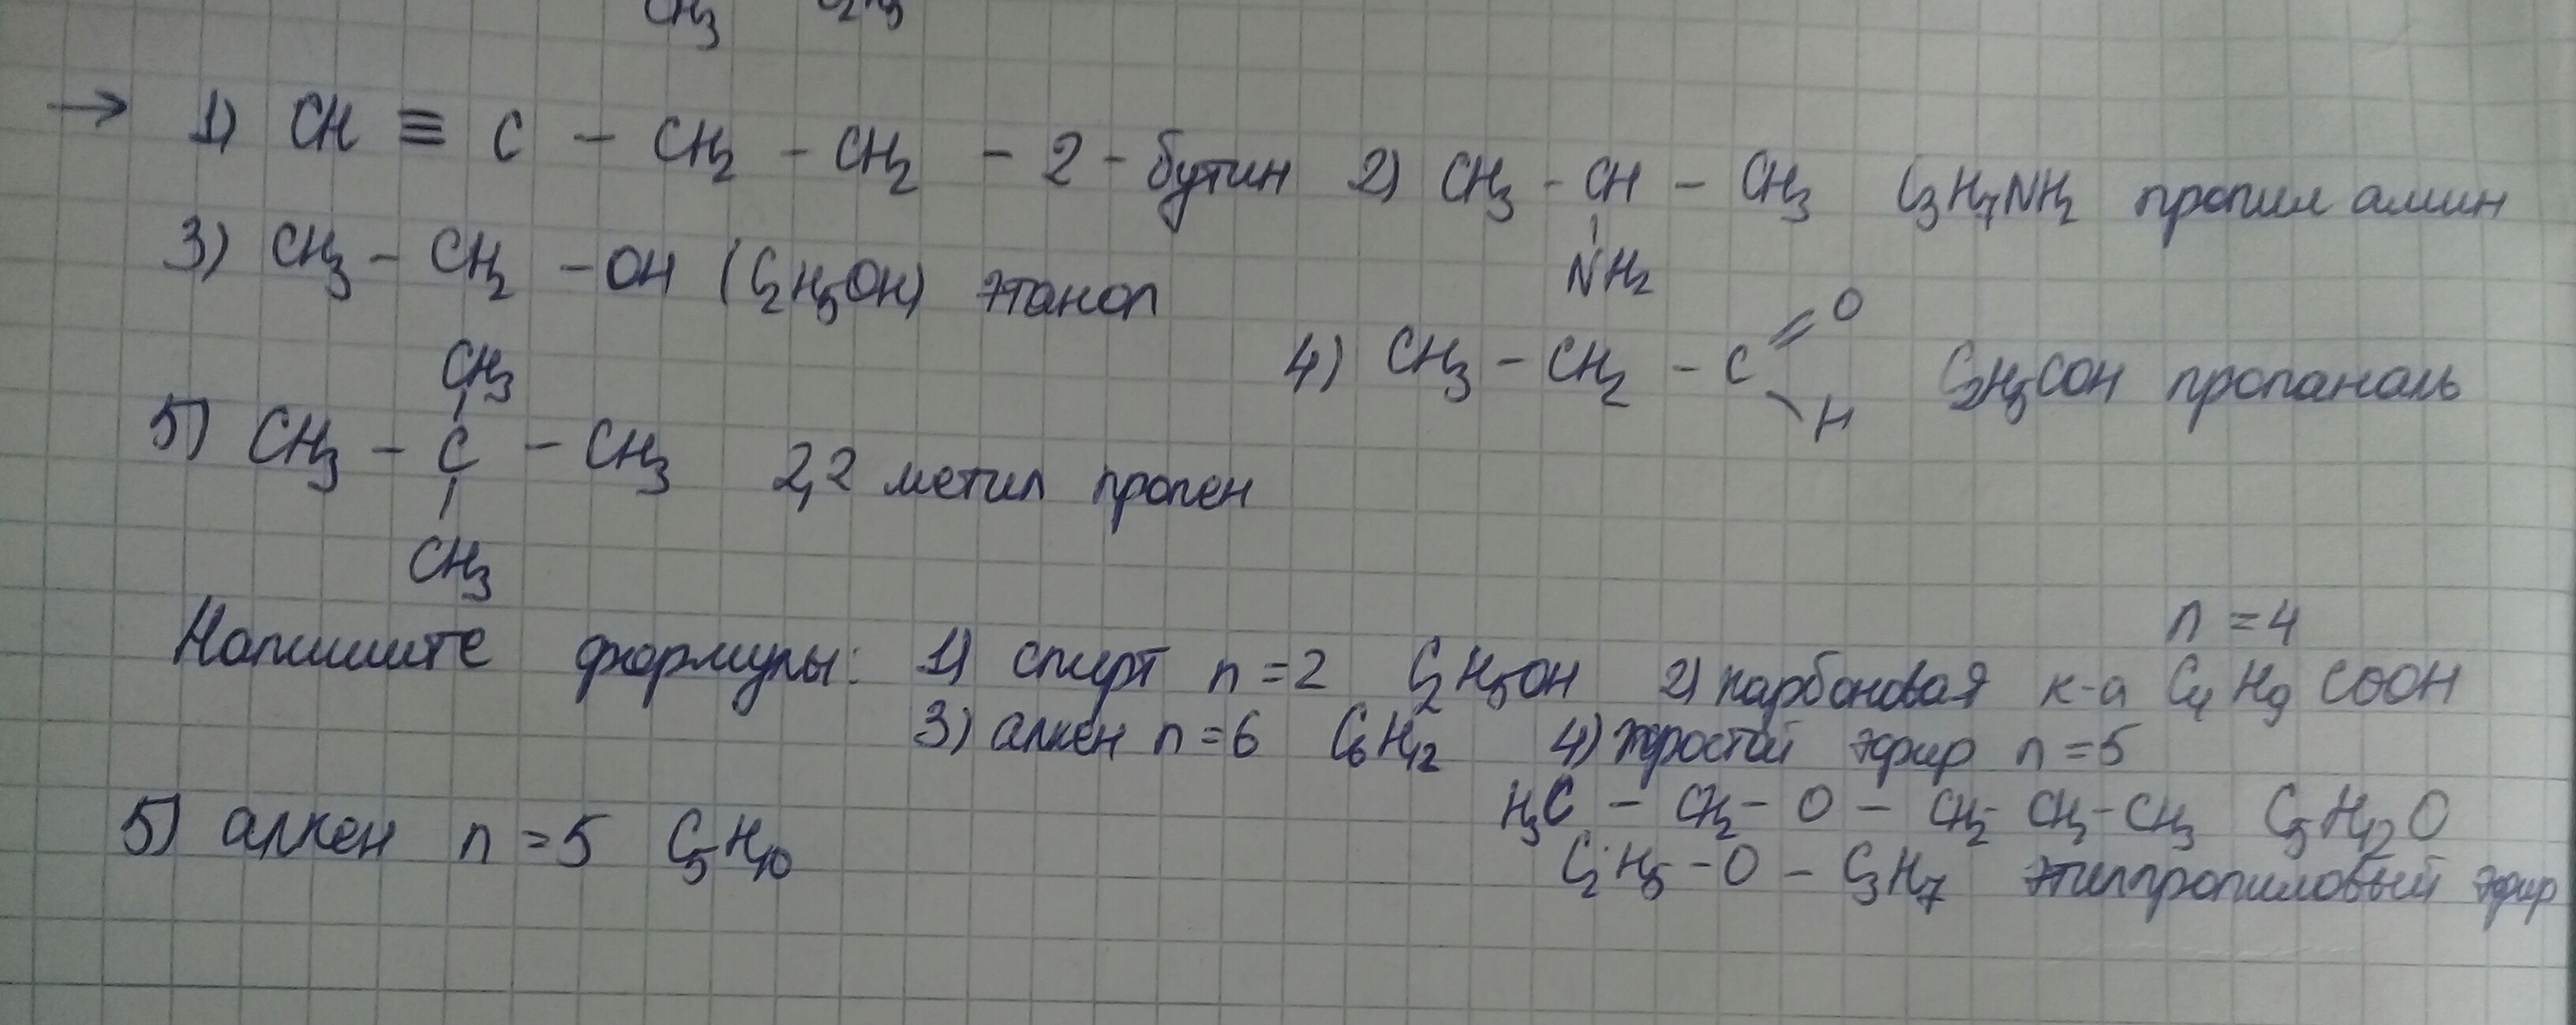 CH₃ C₂H₅
→ 1) CH ≡ C – CH₂ – CH₂ – 2 – бутин 2) CH₃ – CH – CH₃ C₃H₇NH₂ пропил амин
NH₂
3) CH₃ – CH₂ – OH (C₂H₅OH) этанол
4) CH₃ – CH₂ – C =O H C₂H₅COH пропаналь
CH₃
5) CH₃ – C – CH₃ 2,2 метил пропен
CH₃
n = 4
Напишите формулы: 1) спирт n = 2 C₂H₅OH 2) карбоновая к-а C₄H₉COOH
3) алкен n = 6 C₆H₁₂ 4) простой эфир n = 5
H₃C – CH₂ – O – CH₂ – CH₂ – CH₃ C₅H₁₂O
5) алкен n = 5 C₅H₁₀
C₂H₅ – O – C₃H₇ этилпропиловый эфир